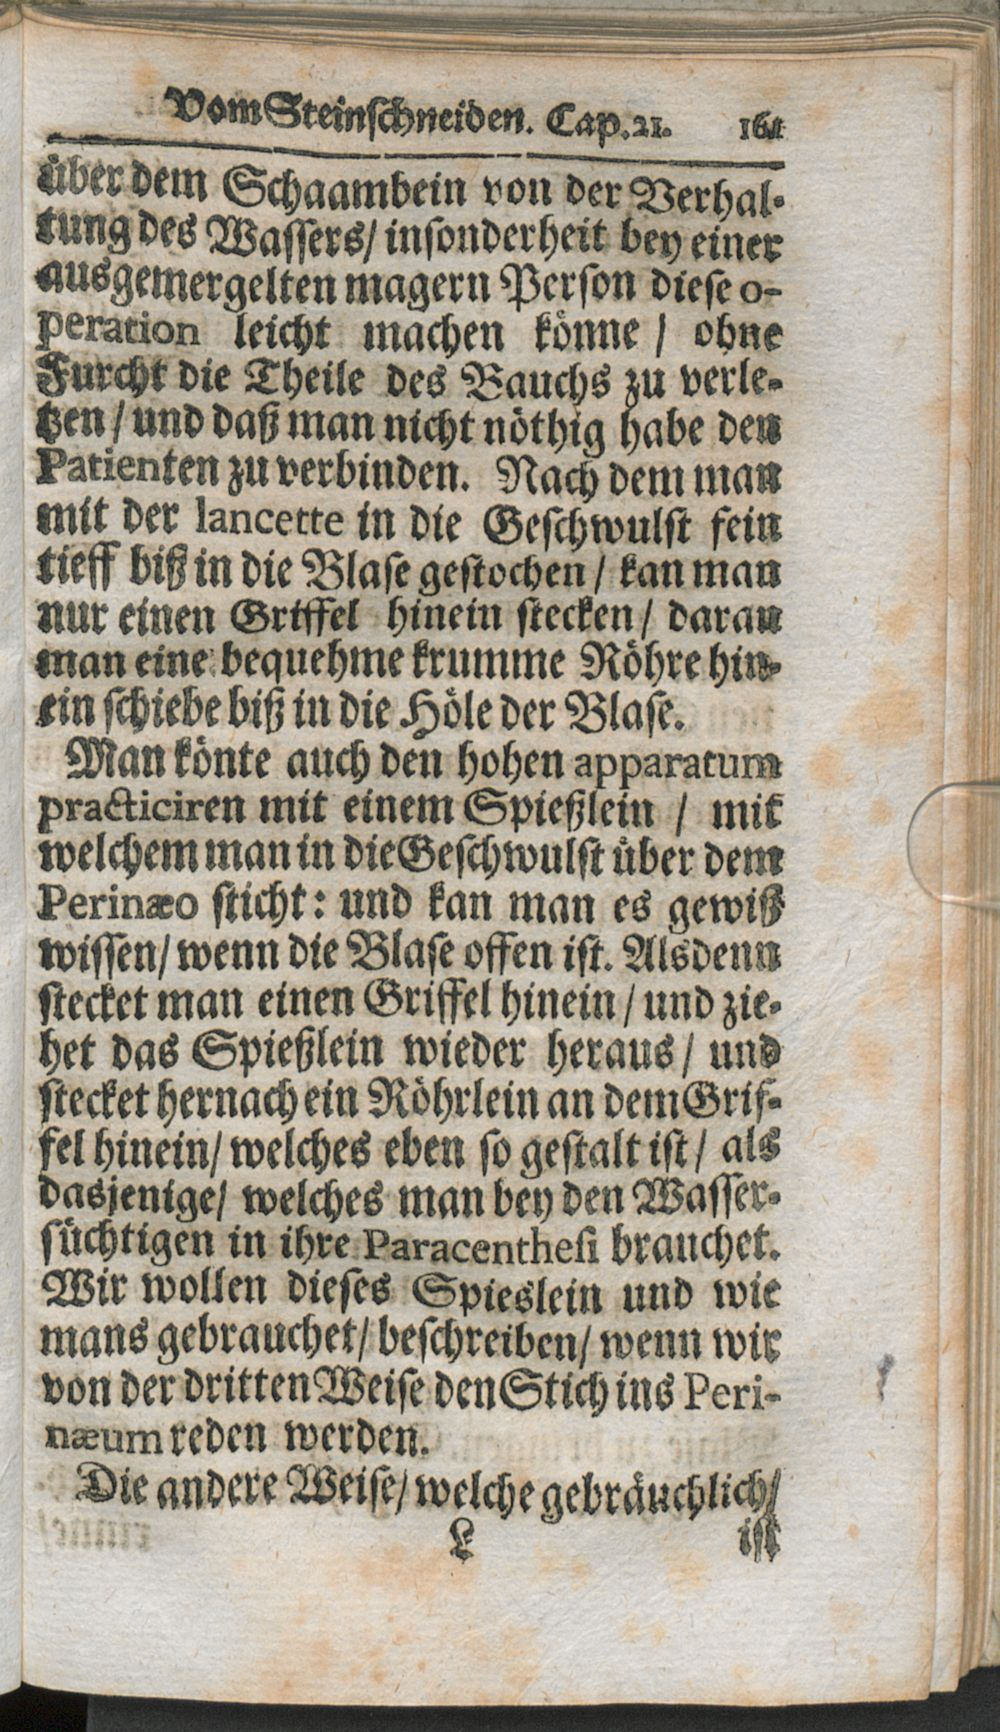 Vom Steinschneiden. Cap. 21. 161
über dem Schaambein von der Verhal-
tung des Wassers/ insonderheit bey einer
ausgemergelten magern Person diese o-
peration leicht machen könne / ohne
Furcht die Theile des Bauchs zu verle-
tzen / und daß man nicht nöthig habe den
Patienten zu verbinden. Nach dem man
mit der lancette in die Geschwulst fein
tieff biß in die Blase gestochen / kan man
nur einen Griffel hinein stecken / daran
man eine bequehme krumme Röhre hin-
ein schiebe biß in die Höle der Blase.
Man könte auch den hohen apparatum
practiciren mit einem Spießlein / mit
welchem man in die Geschwulst über dem
Perinæo sticht: und kan man es gewiß
wissen/ wenn die Blase offen ist. Alsdenn
stecket man einen Griffel hinein / und zie-
het das Spießlein wieder heraus / und
stecket hernach ein Röhrlein an dem Grif-
fel hinein/ welches eben so gestalt ist / als
dasjenige/ welches man bey den Wasser-
süchtigen in ihre Paracenthesi brauchet.
Wir wollen dieses Spieslein und wie
mans gebrauchet/ beschreiben/ wenn wir
von der dritten Weise den Stich ins Peri-
næum reden werden.
Die andere Weise/ welche gebräuchlich/
L ist